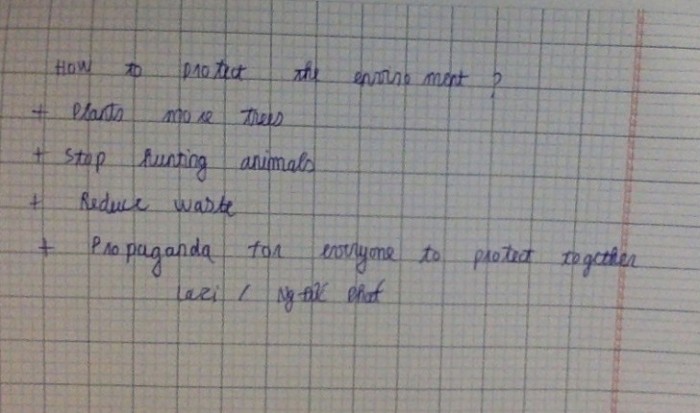 How to protect the enviro ment ?
+ Plants more trees
+ Stop hunting animals
+ Reduce waste
+ Propaganda for everyone to protect together
Lazi /